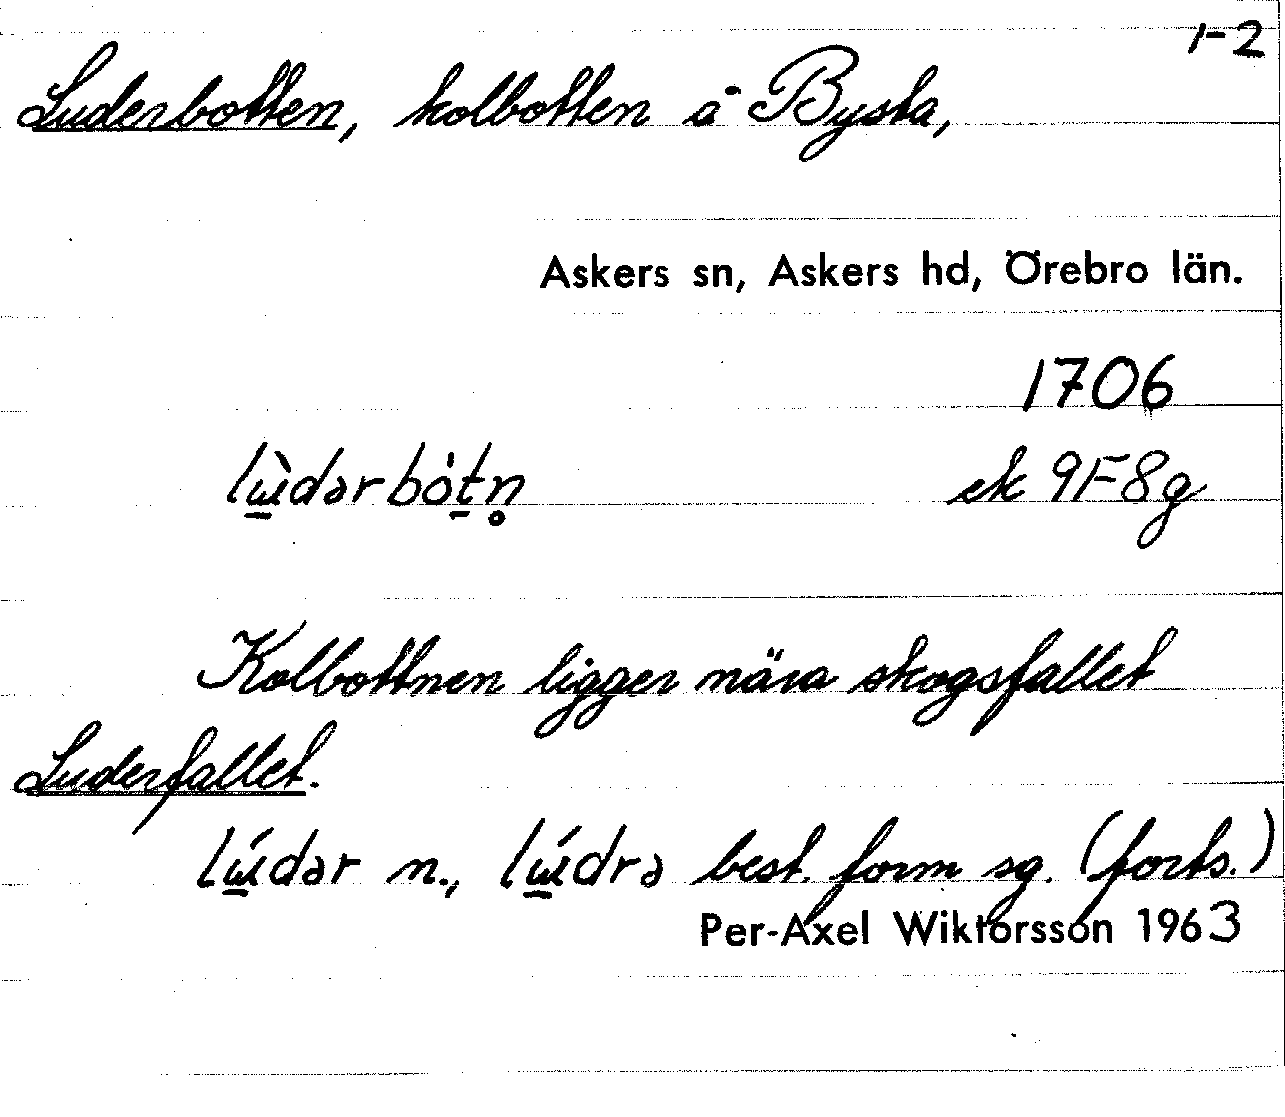 1-2
Luderbotten, kolbotten å Bysta,
Askers sn, Askers hd, Örebro län.
1706
lɯ̲̀dərbȯt̲n̥ ek 9F8g
Kolbottnen ligger nära skogsfallet
Luderfallet.
lɯ̲́dər n., lɯ̲́drə best. form sg. (forts.)
Per-Axel Wiktorsson 1963